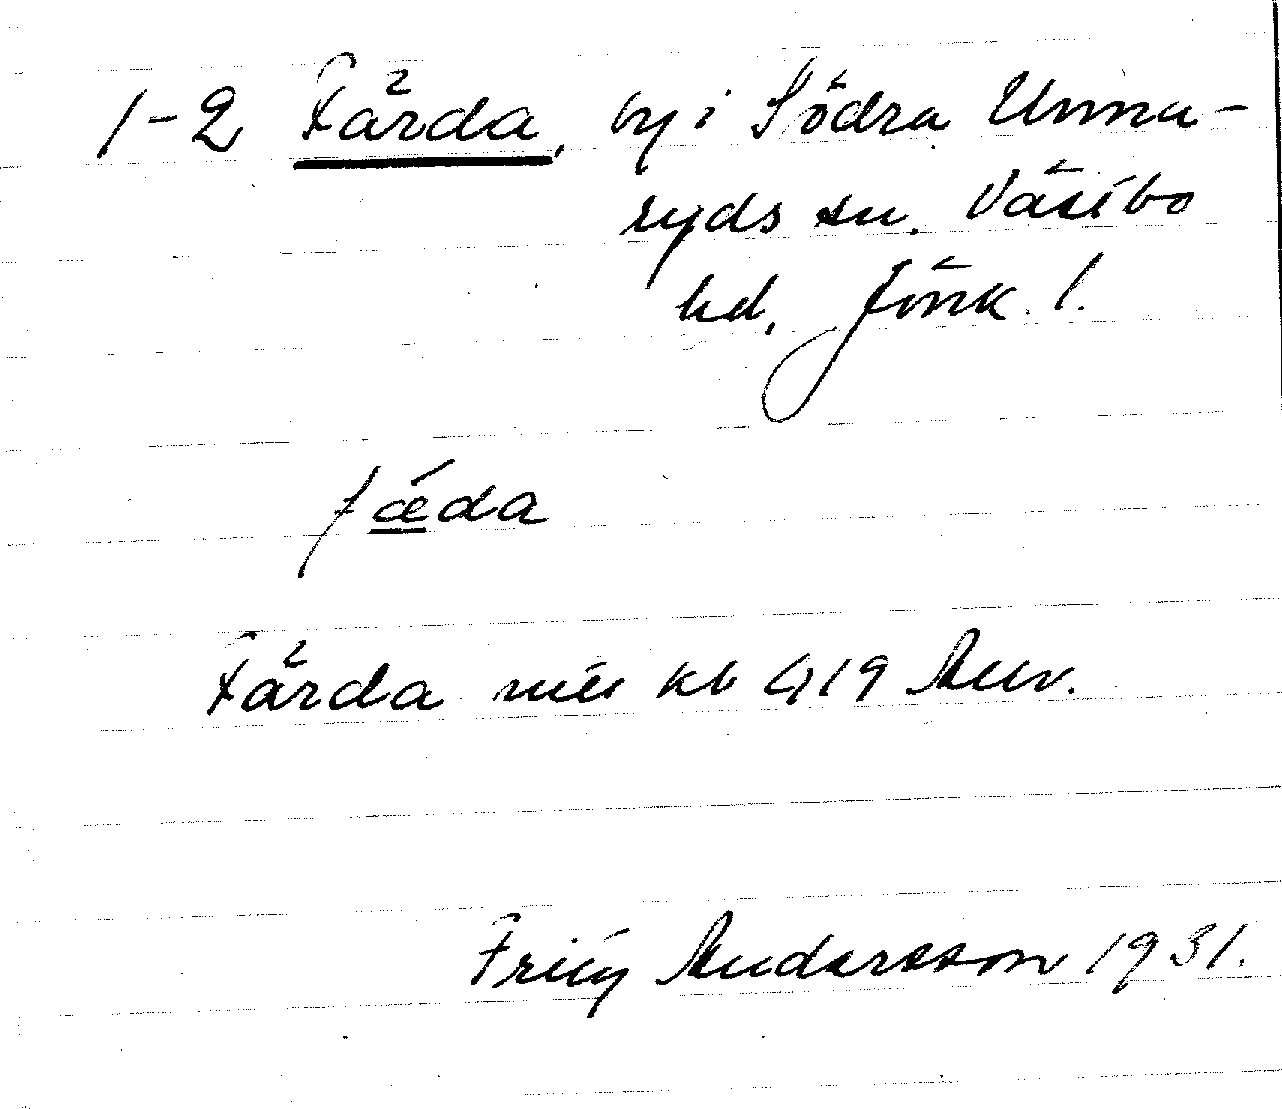 1-2 Färda, by i Södra Unna-
ryds sn. Västbo
hd, Jönk. l.
fǽda
Färda kb 419 Anv.
Andersson 1931.